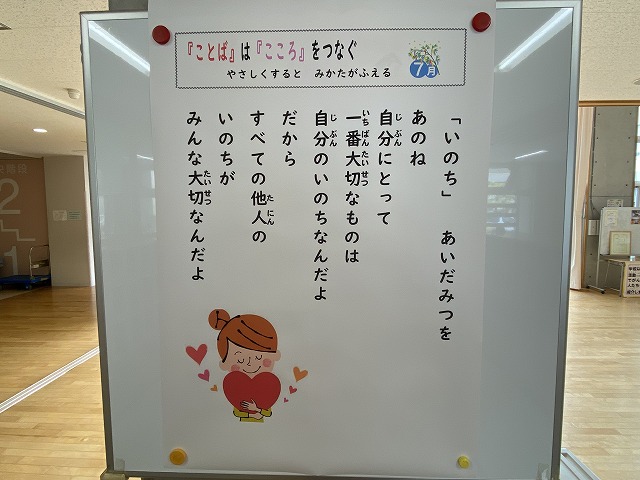 『ことば』は『こころ』をつなぐ
やさしくすると みかたがふえる
7月
「いのち」 あいだみつを
あのね
自分にとって
一番大切なものは
自分のいのちなんだよ
だから
すべての他人の
いのちが
みんな大切なんだよ
2
1